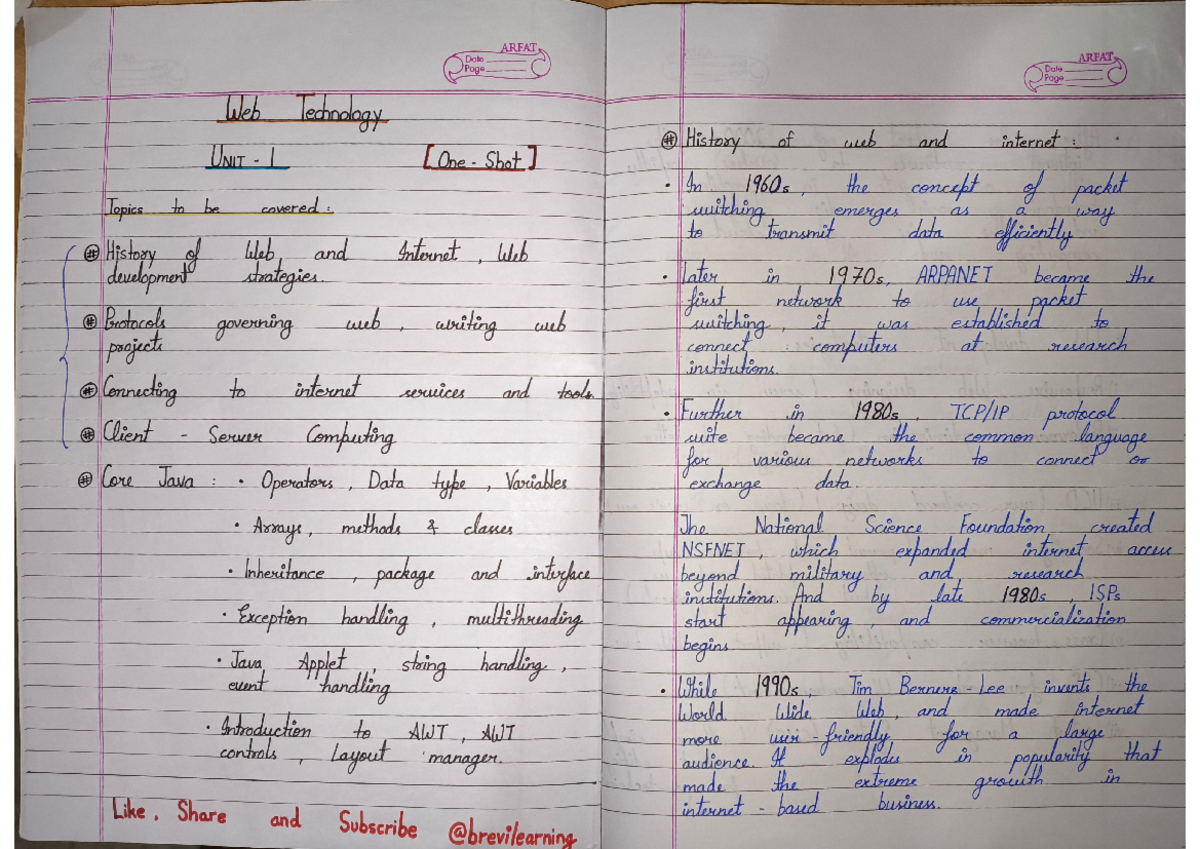 ARFAT
Date
Page
Web Technology
UNIT - 1 [One - Shot]
Topics to be covered :
# History of Web and Internet, Web
development strategies.
# Protocols governing web, writing web
projects
# Connecting to internet services and tools.
# Client - Server Computing
# Core Java : • Operators, Data type, Variables
• Arrays, methods & classes
• Inheritance, package and interface
• Exception handling, multithreading
• Java Applet, string handling,
event handling
• Introduction to AWT, AWT
controls, Layout manager.
Like, Share and Subscribe @brevilearning
ARFAT
Date
Page
# History of web and internet :
• In 1960s, the concept of packet
switching emerges as a way
to transmit data efficiently
• Later in 1970s, ARPANET became the
first network to use packet
switching, it was established to
connect computers at research
institutions.
• Further in 1980s, TCP/IP protocol
suite became the common language
for various networks to connect or
exchange data.
The National Science Foundation created
NSFNET, which expanded internet access
beyond military and research
institutions. And by late 1980s, ISPs
start appearing, and commercialization
begins
• While 1990s, Tim Berners-Lee invents the
World Wide Web, and made internet
more user-friendly for a large
audience. It explodes in popularity that
made the extreme growth in
internet-based business.